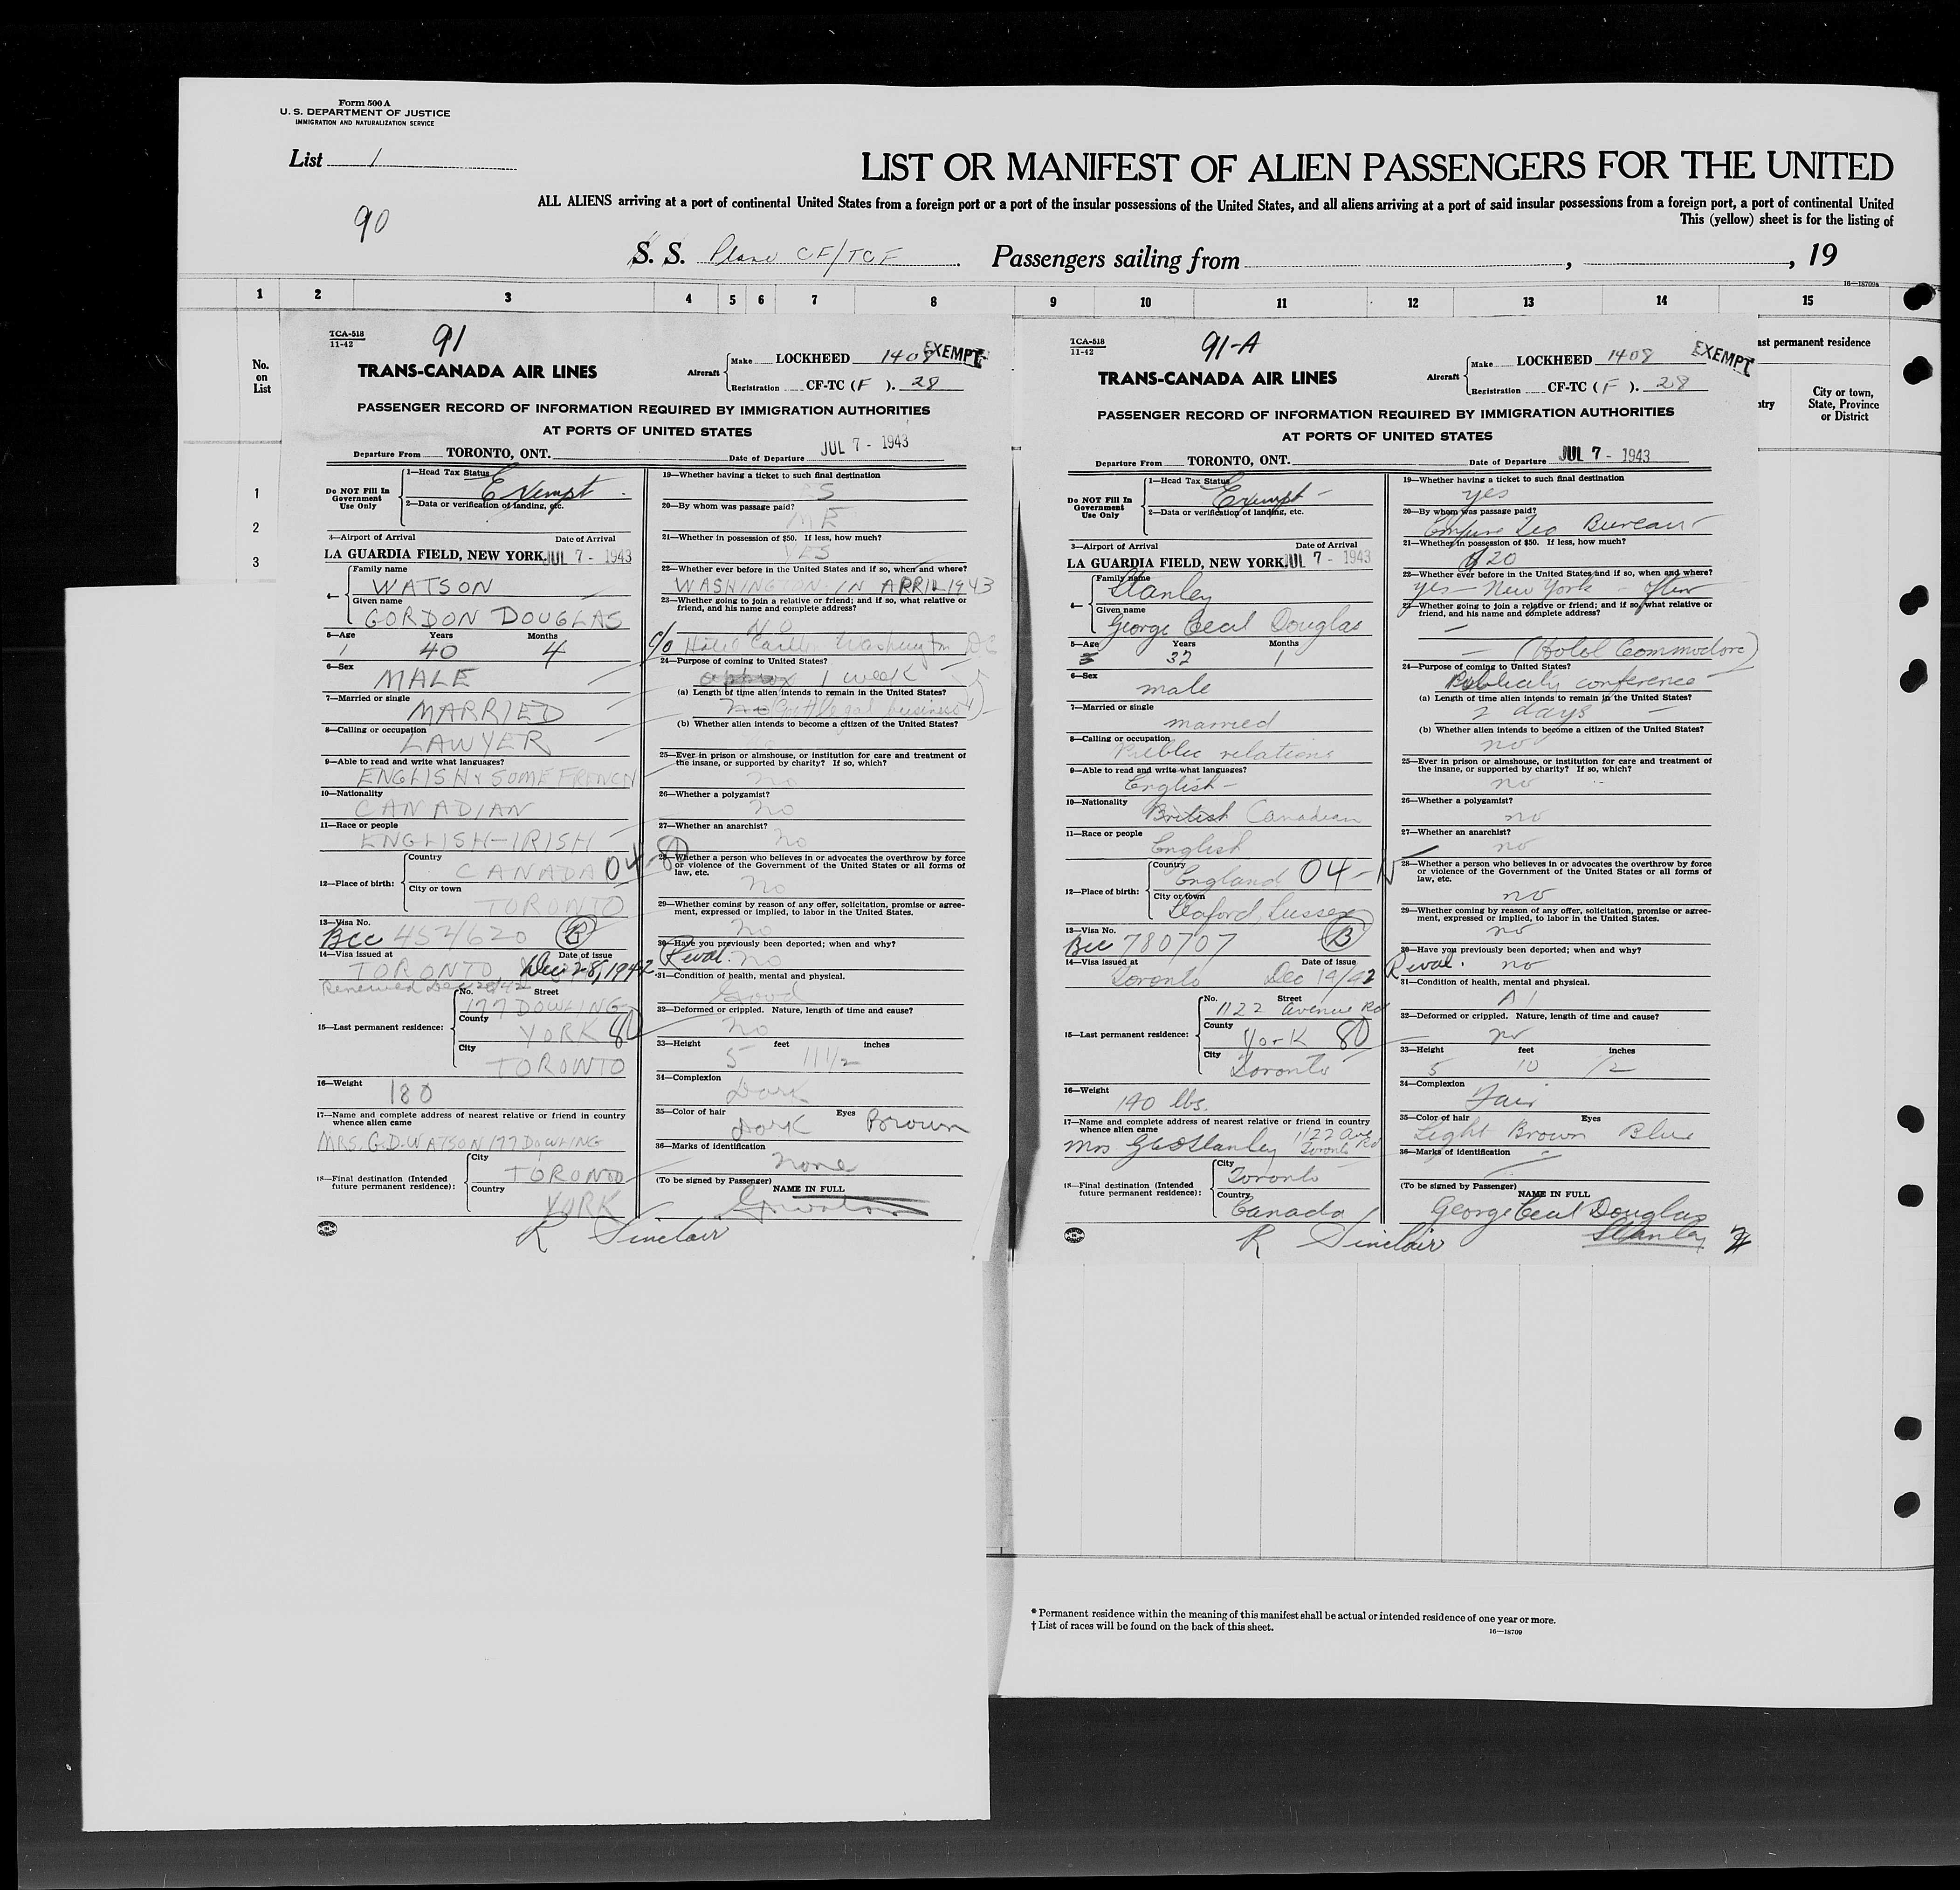 Form 500 A
U. S. DEPARTMENT OF JUSTICE
IMMIGRATION AND NATURALIZATION SERVICE
List 1
LIST OR MANIFEST OF ALIEN PASSENGERS FOR THE UNITED
ALL ALIENS arriving at a port of continental United States from a foreign port or a port of the insular possessions of the United States, and all aliens arriving at a port of said insular possessions from a foreign port, a port of continental United
This (yellow) sheet is for the listing of
90
S. S. Plane CF/TCF Passengers sailing from , , 19
16—18709a
1 2 3 4 5 6 7 8 9 10 11 12 13 14 15
No. on List
1
2
3
ast permanent residence
ntry
City or town, State, Province or District
TCA-518
11-42
91
EXEMPT
TRANS-CANADA AIR LINES
Aircraft
Make LOCKHEED 1408
Registration CF-TC ( F ). 28
PASSENGER RECORD OF INFORMATION REQUIRED BY IMMIGRATION AUTHORITIES
AT PORTS OF UNITED STATES
Departure From TORONTO, ONT. Date of Departure JUL 7 - 1943
Do NOT Fill In Government Use Only
1—Head Tax Status Exempt
2—Data or verification of landing, etc.
3—Airport of Arrival Date of Arrival
LA GUARDIA FIELD, NEW YORK JUL 7 - 1943
4— Family name
WATSON
Given name
GORDON DOUGLAS
5—Age Years Months
40 4
6—Sex
MALE
7—Married or single
MARRIED
8—Calling or occupation
LAWYER
9—Able to read and write what languages?
ENGLISH & SOME FRENCH
10—Nationality
CANADIAN
11—Race or people
ENGLISH-IRISH
12—Place of birth:
Country
CANADA 04-
City or town
TORONTO
13—Visa No.
BCC 454620 B
14—Visa issued at Date of issue
TORONTO, Dec 28, 1942
Renewed Dec 28/42
15—Last permanent residence:
No. Street
177 DOWLING
County
YORK 80
City
TORONTO
16—Weight
180
17—Name and complete address of nearest relative or friend in country
whence alien came
MRS. G. D. WATSON 177 DOWLING
18—Final destination (Intended future permanent residence):
City
TORONTO
Country
YORK
R Sinclair
19—Whether having a ticket to such final destination
20—By whom was passage paid?
ME
21—Whether in possession of $50. If less, how much?
YES
22—Whether ever before in the United States and if so, when and where?
WASHINGTON - IN APRIL 1943
23—Whether going to join a relative or friend; and if so, what relative or
friend, and his name and complete address?
NO
c/o Hotel Carlton Washington DC
24—Purpose of coming to United States?
approx 1 week
(a) Length of time alien intends to remain in the United States?
legal business
(b) Whether alien intends to become a citizen of the United States?
25—Ever in prison or almshouse, or institution for care and treatment of
the insane, or supported by charity? If so, which?
no
26—Whether a polygamist?
no
27—Whether an anarchist?
no
28—Whether a person who believes in or advocates the overthrow by force
or violence of the Government of the United States or all forms of
law, etc.
no
29—Whether coming by reason of any offer, solicitation, promise or agree-
ment, expressed or implied, to labor in the United States.
no
30—Have you previously been deported; when and why?
Reval. no
31—Condition of health, mental and physical.
Good
32—Deformed or crippled. Nature, length of time and cause?
no
33—Height feet inches
5 11 1/2
34—Complexion
Dark
35—Color of hair Eyes
Dark Brown
36—Marks of identification
none
(To be signed by Passenger)
NAME IN FULL
TCA-518
11-42
91-A
EXEMPT
TRANS-CANADA AIR LINES
Aircraft
Make LOCKHEED 1408
Registration CF-TC ( F ). 28
PASSENGER RECORD OF INFORMATION REQUIRED BY IMMIGRATION AUTHORITIES
AT PORTS OF UNITED STATES
Departure From TORONTO, ONT. Date of Departure JUL 7 - 1943
Do NOT Fill In Government Use Only
1—Head Tax Status Exempt
2—Data or verification of landing, etc.
3—Airport of Arrival Date of Arrival
LA GUARDIA FIELD, NEW YORK JUL 7 - 1943
4— Family name
Stanley
Given name
George Cecil Douglas
5—Age Years Months
32 1
6—Sex
male
7—Married or single
married
8—Calling or occupation
Public relations
9—Able to read and write what languages?
English
10—Nationality
British Canadian
11—Race or people
English
12—Place of birth:
Country
England 04-N
City or town
Seaford, Sussex
13—Visa No.
BCC 780707 B
14—Visa issued at Date of issue
Toronto Dec 19/42
15—Last permanent residence:
No. Street
1122 Avenue Rd
County
York 80
City
Toronto
16—Weight
190 lbs.
17—Name and complete address of nearest relative or friend in country
whence alien came
Mrs. G C D Stanley 1122 Ave Rd Toronto
18—Final destination (Intended future permanent residence):
City
Toronto
Country
Canada
R Sinclair
19—Whether having a ticket to such final destination
yes
20—By whom was passage paid?
Bureau
21—Whether in possession of $50. If less, how much?
$20
22—Whether ever before in the United States and if so, when and where?
yes — New York — often
23—Whether going to join a relative or friend; and if so, what relative or
friend, and his name and complete address?
— (Hotel Commodore)
24—Purpose of coming to United States?
Publicity conference
(a) Length of time alien intends to remain in the United States?
2 days
(b) Whether alien intends to become a citizen of the United States?
no
25—Ever in prison or almshouse, or institution for care and treatment of
the insane, or supported by charity? If so, which?
no
26—Whether a polygamist?
no
27—Whether an anarchist?
no
28—Whether a person who believes in or advocates the overthrow by force
or violence of the Government of the United States or all forms of
law, etc.
no
29—Whether coming by reason of any offer, solicitation, promise or agree-
ment, expressed or implied, to labor in the United States.
no
30—Have you previously been deported; when and why?
Reval. no
31—Condition of health, mental and physical.
A1
32—Deformed or crippled. Nature, length of time and cause?
no
33—Height feet inches
5 10 1/2
34—Complexion
Fair
35—Color of hair Eyes
Light Brown Blue
36—Marks of identification
(To be signed by Passenger)
NAME IN FULL
George Cecil Douglas
Stanley
* Permanent residence within the meaning of this manifest shall be actual or intended residence of one year or more.
† List of races will be found on the back of this sheet.
16—18709